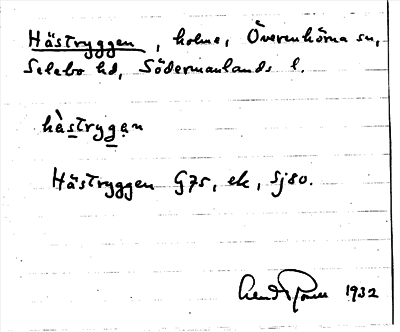 Hästryggen, holme, Överenhörna sn,
Selebo hd, Södermanlands l.
hàstrygan
Hästryggen G75, ek, Sj80.
1932